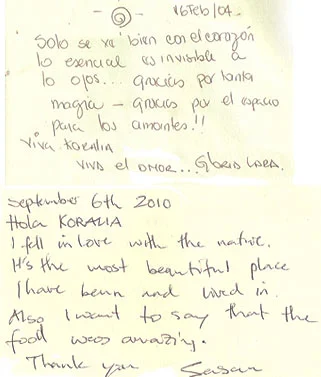 16 Feb/04.
Solo se va bien con el corazón
lo esencial es invisible a
lo ojos... gracias por tanta
magia – gracias por el espacio
para los amantes.!!
Viva Koralia
Viva el amor... Gloria Lara.
September 6th 2010
Hola KORALIA
I fell in love with the native.
It's the most beautiful place
I have been and lived in.
Also I want to say that the
food was amazing.
Thank you Sasan